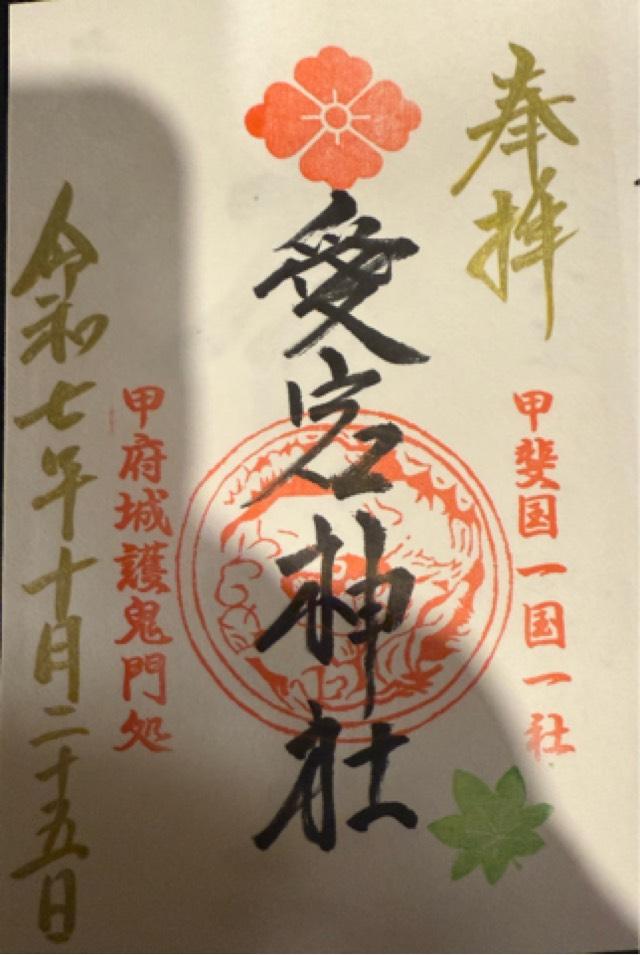 奉拝
甲斐国一国一社
愛宕神社
甲府城護鬼門処
令和七年十月二十五日